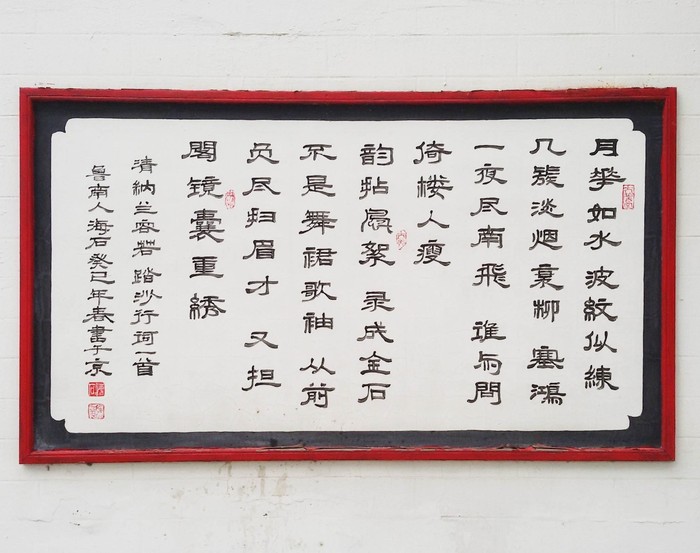 月華如水 波紋似練
几簇淡烟衰柳 塞鴻
一夜尽南飛 誰与問
倚楼人瘦
韵拈風絮 录成金石
不是舞裙歌袖 从前
负尽扫眉才 又担
閣镜囊重绣
清纳兰容若踏沙行词一首
鲁南人海石癸巳年春書于京